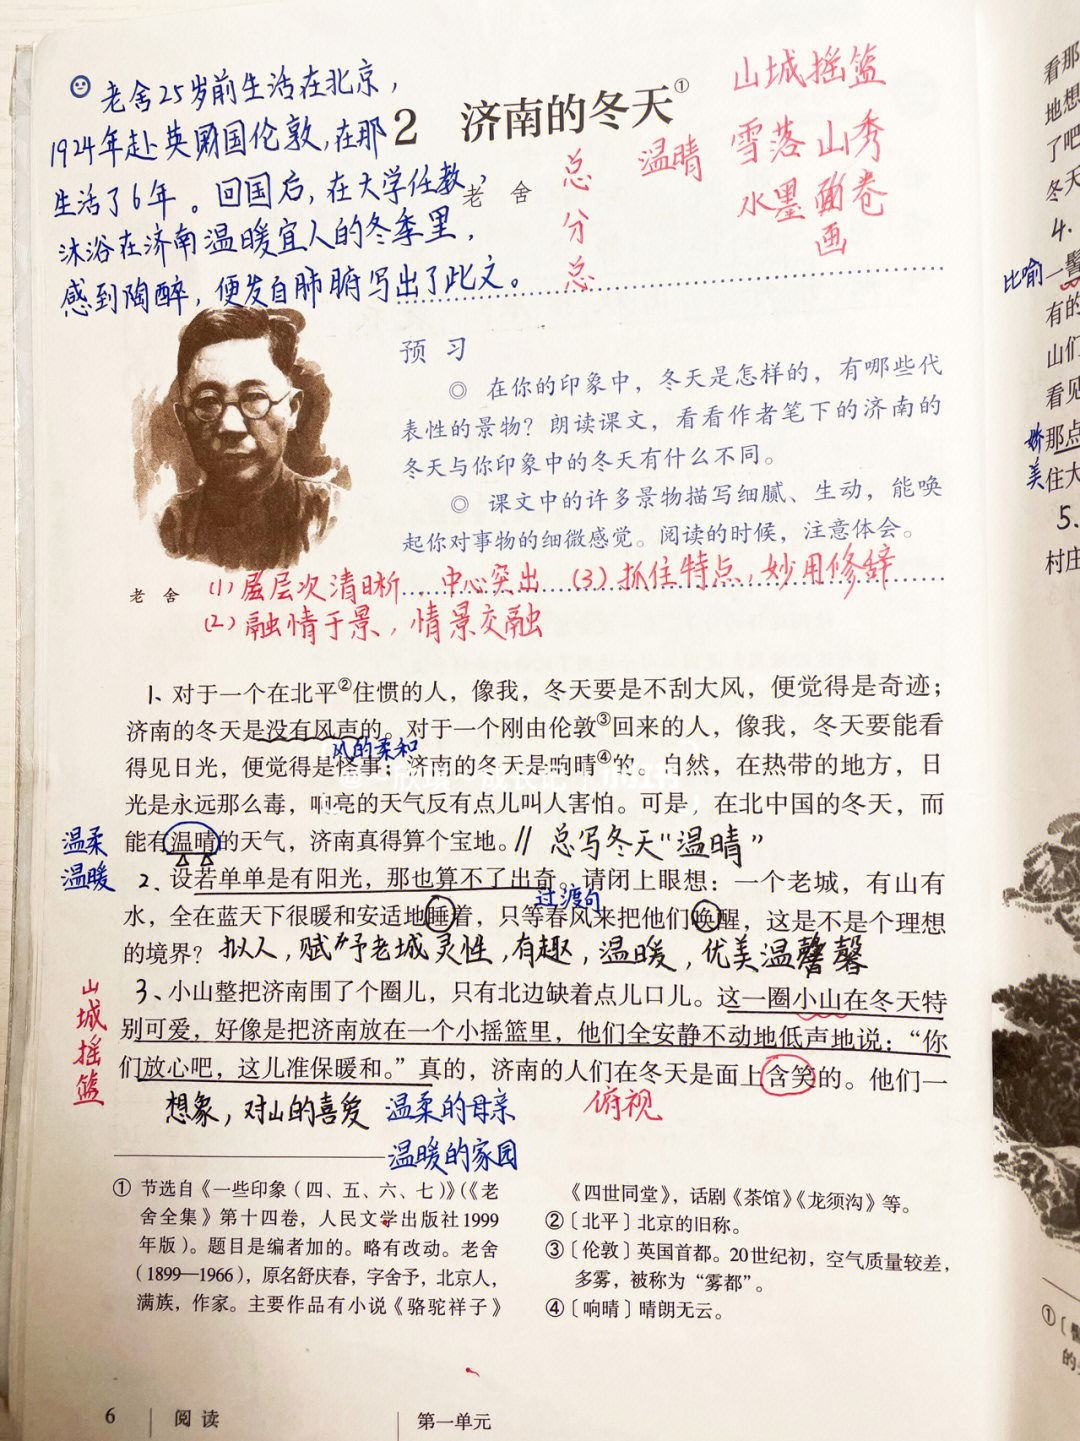 老舍25岁前生活在北京，
1924年赴英国伦敦，在那
生活了6年。回国后，在大学任教，
沐浴在济南温暖宜人的冬季里，
感到陶醉，便发自肺腑写出了此文。
2 济南的冬天①
老 舍
总
分
总
温晴
山城摇篮
雪落山秀
水墨卷
画
预 习
◎ 在你的印象中，冬天是怎样的，有哪些代
表性的景物？朗读课文，看看作者笔下的济南的
冬天与你印象中的冬天有什么不同。
◎ 课文中的许多景物描写细腻、生动，能唤
起你对事物的细微感觉。阅读的时候，注意体会。
老 舍
(1)层次清晰，中心突出 (3)抓住特点，妙用修辞
(2)融情于景，情景交融
1、对于一个在北平②住惯的人，像我，冬天要是不刮大风，便觉得是奇迹；
济南的冬天是没有风声的。对于一个刚由伦敦③回来的人，像我，冬天要能看
风的柔和
得见日光，便觉得是怪事；济南的冬天是响晴④的。自然，在热带的地方，日
光是永远那么毒，响亮的天气反有点儿叫人害怕。可是，在北中国的冬天，而
能有温晴的天气，济南真得算个宝地。// 总写冬天“温晴”
温柔
温暖
2、设若单单是有阳光，那也算不了出奇。请闭上眼想：一个老城，有山有
过渡句
水，全在蓝天下很暖和安适地睡着，只等春风来把他们唤醒，这是不是个理想
的境界？拟人，赋予老城灵性，有趣，温暖，优美温馨
3、小山整把济南围了个圈儿，只有北边缺着点儿口儿。这一圈小山在冬天特
别可爱，好像是把济南放在一个小摇篮里，他们全安静不动地低声地说：“你
们放心吧，这儿准保暖和。”真的，济南的人们在冬天是面上含笑的。他们一
山城摇篮
想象，对山的喜爱 温柔的母亲 俯视
温暖的家园
① 节选自《一些印象（四、五、六、七）》（《老
舍全集》第十四卷，人民文学出版社1999
年版）。题目是编者加的。略有改动。老舍
（1899—1966），原名舒庆春，字舍予，北京人，
满族，作家。主要作品有小说《骆驼祥子》
《四世同堂》，话剧《茶馆》《龙须沟》等。
②〔北平〕北京的旧称。
③〔伦敦〕英国首都。20世纪初，空气质量较差，
多雾，被称为“雾都”。
④〔响晴〕晴朗无云。
6 阅读 第一单元
看那
地想
了吧
冬天
4.
比喻
一髻
有的
山们
看见
娇美
那点
住大
5、
村庄